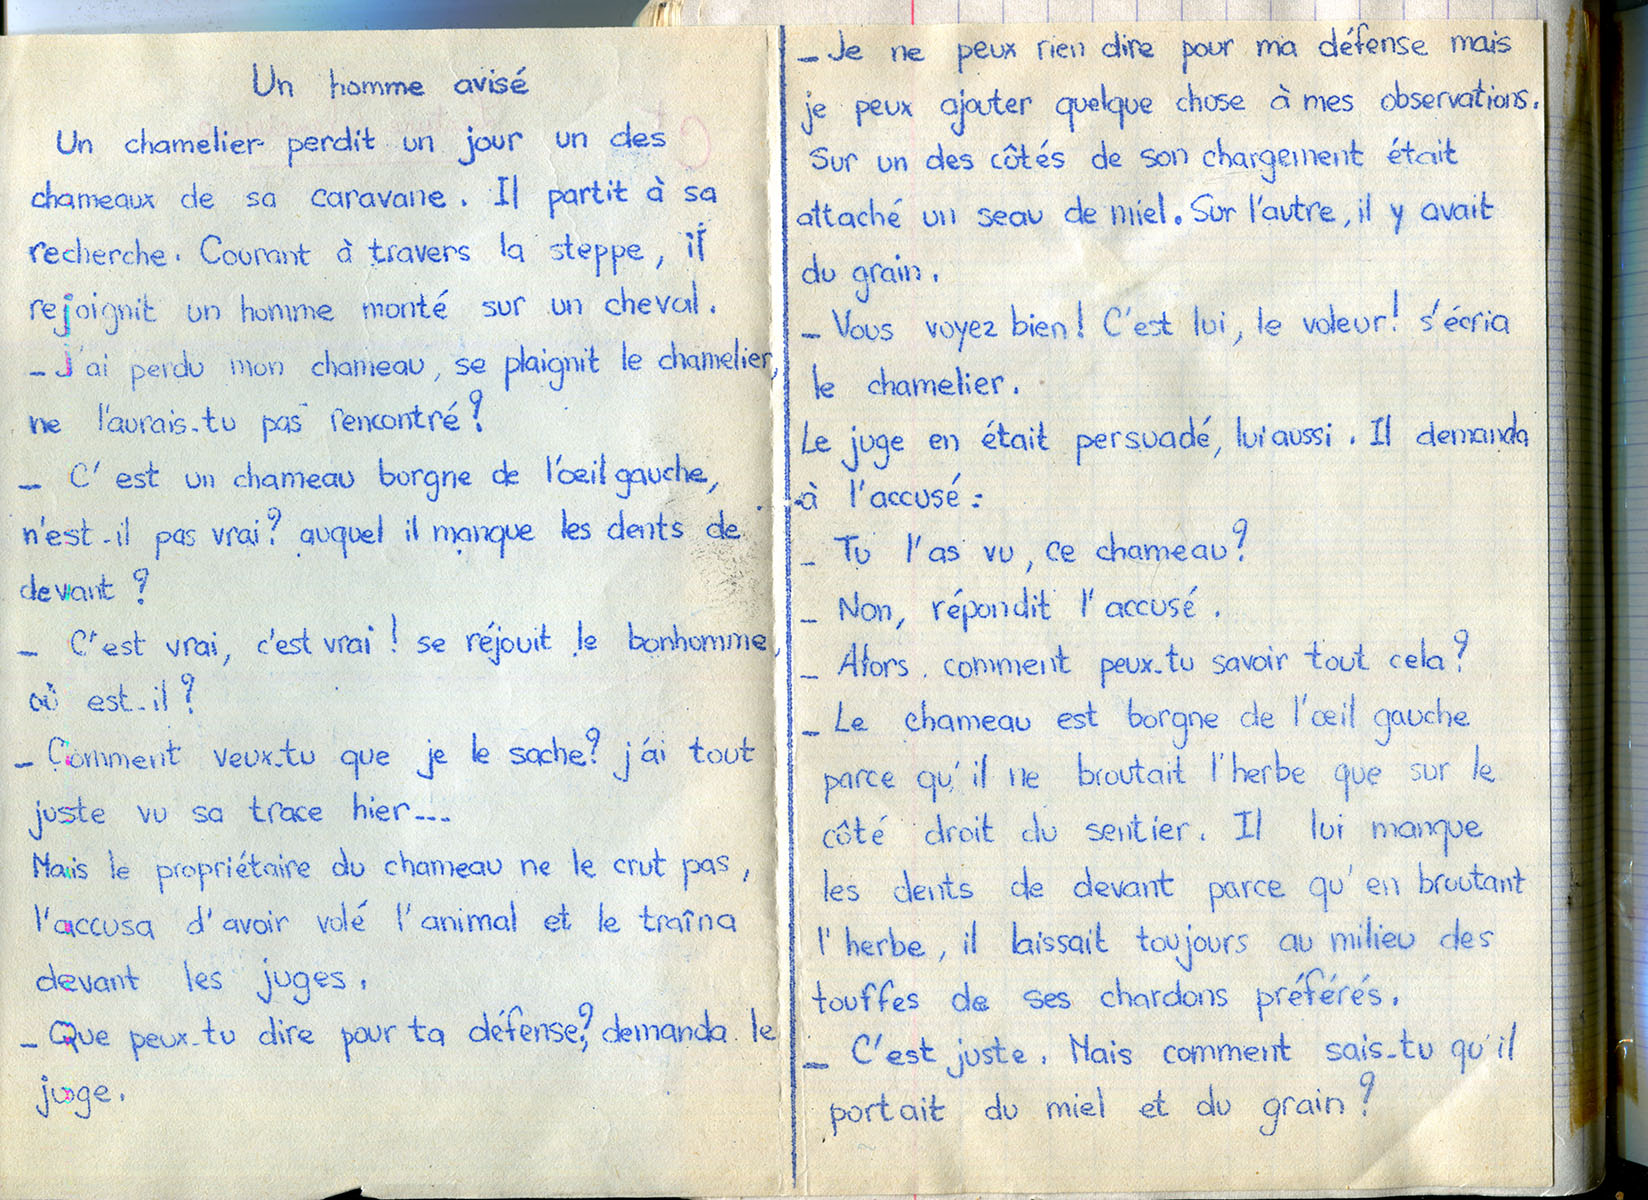 Un homme avisé
Un chamelier perdit un jour un des
chameaux de sa caravane. Il partit à sa
recherche. Courant à travers la steppe, il
rejoignit un homme monté sur un cheval.
_ J'ai perdu mon chameau, se plaignit le chamelier,
ne l'aurais-tu pas rencontré ?
_ C'est un chameau borgne de l'œil gauche,
n'est-il pas vrai ? auquel il manque les dents de
devant ?
_ C'est vrai, c'est vrai ! se réjouit le bonhomme,
où est-il ?
_ Comment veux-tu que je le sache ? j'ai tout
juste vu sa trace hier...
Mais le propriétaire du chameau ne le crut pas,
l'accusa d'avoir volé l'animal et le traîna
devant les juges.
_ Que peux-tu dire pour ta défense ?, demanda le
juge.
_ Je ne peux rien dire pour ma défense mais
je peux ajouter quelque chose à mes observations.
Sur un des côtés de son chargement était
attaché un seau de miel. Sur l'autre, il y avait
du grain.
_ Vous voyez bien ! C'est lui, le voleur ! s'écria
le chamelier.
Le juge en était persuadé, lui aussi. Il demanda
à l'accusé :
_ Tu l'as vu, ce chameau ?
_ Non, répondit l'accusé.
_ Alors. comment peux-tu savoir tout cela ?
_ Le chameau est borgne de l'œil gauche
parce qu'il ne broutait l'herbe que sur le
côté droit du sentier. Il lui manque
les dents de devant parce qu'en broutant
l'herbe, il laissait toujours au milieu des
touffes de ses chardons préférés.
_ C'est juste. Mais comment sais-tu qu'il
portait du miel et du grain ?